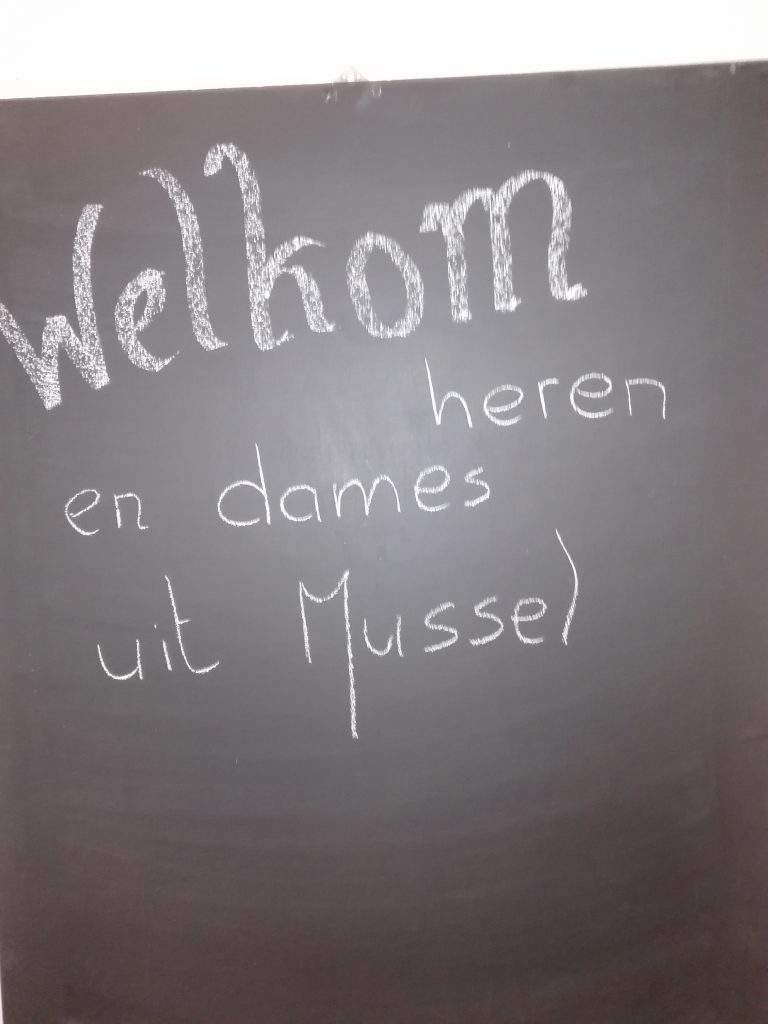 Welkom
heren
en dames
uit Mussel